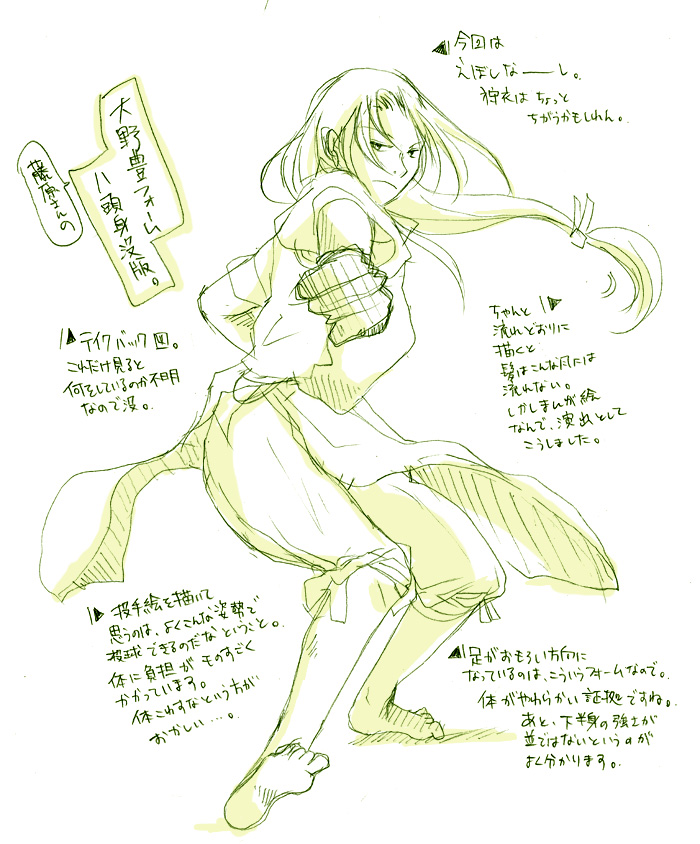 大野豊フォーム
八頭身没版。
藤原さんの
今回は
えぼしなーーし。
狩衣は ちょっと
ちがうかもしれん。
テイクバック図。
これだけ見ると
何をしているのか不明
なので没。
ちゃんと
流れどおりに
描くと
髪はこんな風には
流れない。
しかしまんが絵
なんで、演出として
こうしました。
投手絵を描いて
思うのは、よくこんな姿勢で
投球できるのだなということ。
体に負担が ものすごく
かかっています。
体こわすなという方が
おかしい…。
足がおもろい方向に
なっているのは、こういうフォームなので。
体がやわらかい証拠ですね。
あと、下半身の強さが
並ではないというのが
よく分かります。